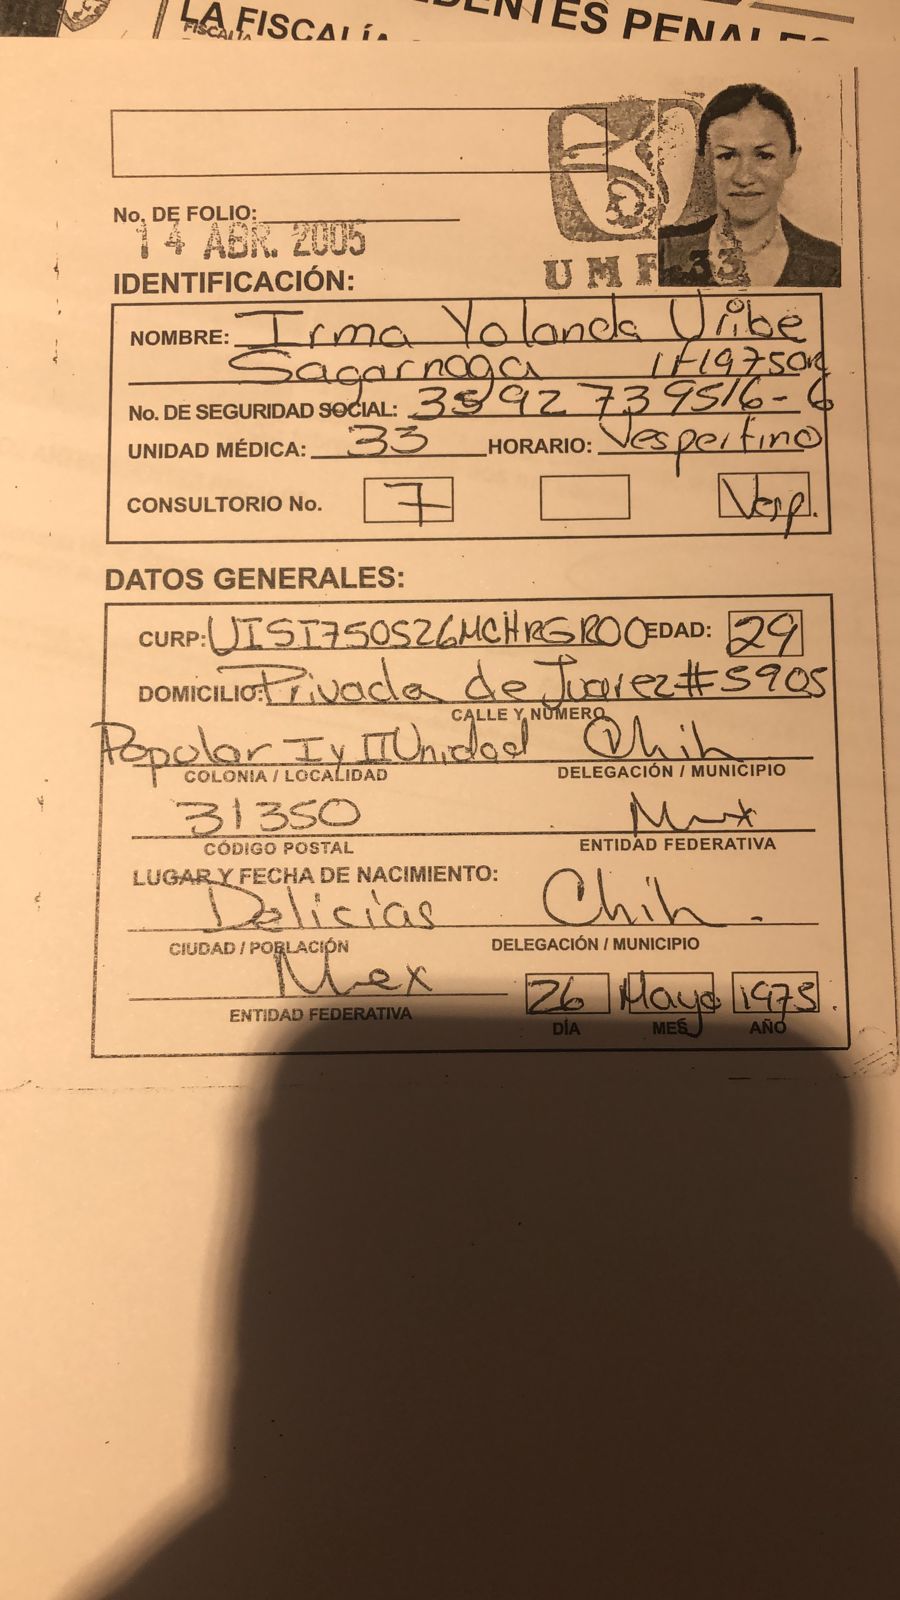 LA FISCALÍA
FISCALÍA
PENALES
No. DE FOLIO:
14 ABR. 2005
UMF 33
IDENTIFICACIÓN:
NOMBRE: Irma Yolanda Uribe
Sagarnaga 1F1975OR
No. DE SEGURIDAD SOCIAL: 3592739516-6
UNIDAD MÉDICA: 33 HORARIO: Vespertino
CONSULTORIO No. 7 Vesp.
DATOS GENERALES:
CURP: UISI750526MCHRGR00 EDAD: 29
DOMICILIO: Privada de Juarez #5905
CALLE Y NÚMERO
Popular I y II Unidad Chih
COLONIA / LOCALIDAD DELEGACIÓN / MUNICIPIO
31350 Mex
CÓDIGO POSTAL ENTIDAD FEDERATIVA
LUGAR Y FECHA DE NACIMIENTO:
Delicias Chih.
CIUDAD / POBLACIÓN DELEGACIÓN / MUNICIPIO
Mex 26 Mayo 1975.
ENTIDAD FEDERATIVA DÍA MES AÑO